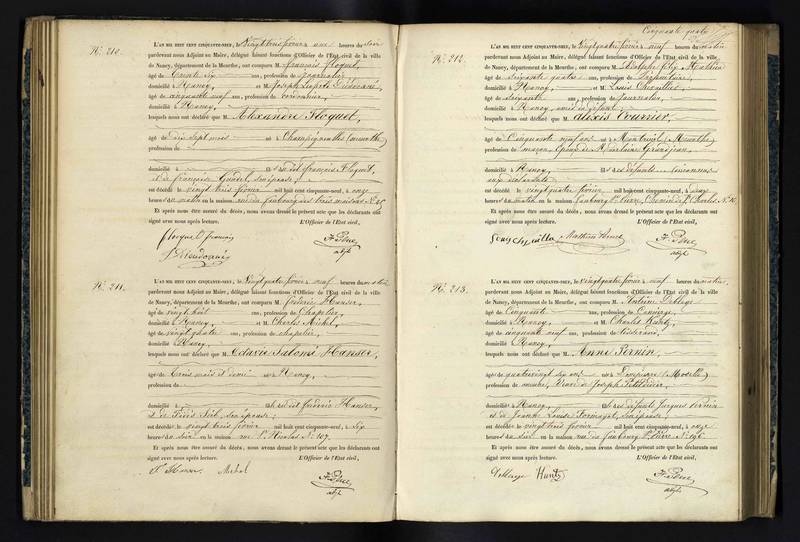 N.º 210.
L'AN MIL HUIT CENT CINQUANTE-NEUF, le vingt trois février onze heures du matin
pardevant nous Adjoint au Maire, délégué faisant fonctions d'Officier de l'Etat civil de la ville
de Nancy, département de la Meurthe, ont comparu M. françois floquet,
âgé de trente six ans, profession de Journalier
domicilié à Nancy, et M. Joseph Dieudonné,
âgé de cinquante neuf ans, profession de cordonnier,
domicilié à Nancy,
lesquels nous ont déclaré que M. Alexandre Floquet,
âgé de dix sept mois né à Champigneulles (meurthe)
profession de
domicilié à fils dud. françois Floquet,
et de françoise son épouse
est décédé le vingt trois février mil huit cent cinquante-neuf, à onze
heures du matin en la maison rue du faubourg des trois maisons N.º
Et après nous être assuré du décès, nous avons dressé le présent acte que les déclarants ont
signé avec nous après lecture. L'Officier de l'Etat civil,
floquet françois
Dieudonné
adjt
N.º 211.
L'AN MIL HUIT CENT CINQUANTE-NEUF, le vingt quatre février neuf heures du matin
pardevant nous Adjoint au Maire, délégué faisant fonctions d'Officier de l'Etat civil de la ville
de Nancy, département de la Meurthe, ont comparu M. fréderic Hanser,
âgé de vingt huit ans, profession de Chapelier,
domicilié à Nancy, et M. Charles Michel,
âgé de vingt quatre ans, profession de chapelier,
domicilié à Nancy,
lesquels nous ont déclaré que M. Octavie Salomé Hanser,
âgé de trois mois et demi né à Nancy,
profession de
domicilié à fille dud. fréderic Hanser,
et de son épouse
est décédé le vingt trois février mil huit cent cinquante-neuf, à six
heures du soir en la maison rue St. Nicolas N.º 107.
Et après nous être assuré du décès, nous avons dressé le présent acte que les déclarants ont
signé avec nous après lecture. L'Officier de l'Etat civil,
Michel
adjt
Cinquante quatre
N.º 212.
L'AN MIL HUIT CENT CINQUANTE-NEUF, le vingt quatre février neuf heures du matin
pardevant nous Adjoint au Maire, délégué faisant fonctions d'Officier de l'Etat civil de la ville
de Nancy, département de la Meurthe, ont comparu M. Mathieu
âgé de soixante quatre ans, profession de Propriétaire,
domicilié à Nancy, et M. Louis
âgé de soixante ans, profession de Journalier,
domicilié à Nancy, amis du défunt
lesquels nous ont déclaré que M. Alexis Vourrier,
âgé de cinquante neuf ans né à (Meurthe)
profession de maçon, époux de Grandjean,
domicilié à Nancy, fils des défunts inconnus
aux déclarants
est décédé le vingt quatre février mil huit cent cinquante-neuf, à deux
heures du matin en la maison faubourg St. Pierre, Chemin de St. Charles N.º
Et après nous être assuré du décès, nous avons dressé le présent acte que les déclarants ont
signé avec nous après lecture. L'Officier de l'Etat civil,
Mathieu
adjt
N.º 213.
L'AN MIL HUIT CENT CINQUANTE-NEUF, le vingt quatre février neuf heures du matin,
pardevant nous Adjoint au Maire, délégué faisant fonctions d'Officier de l'Etat civil de la ville
de Nancy, département de la Meurthe, ont comparu M. Antoine
âgé de cinquante ans, profession de
domicilié à Nancy, et M. Charles Kuntz,
âgé de cinquante neuf ans, profession de tisserand
domicilié à Nancy,
lesquels nous ont déclaré que M. Anne Pernin,
âgé de quatre vingt six ans né à Dampierre (Moselle)
profession de veuve de Joseph
domicilié à Nancy, fille des défunts Jacques Pernin
et de Jeanne Louise son épouse
est décédé le vingt trois février mil huit cent cinquante-neuf, à onze
heures du soir en la maison rue du faubourg St. Pierre N.º
Et après nous être assuré du décès, nous avons dressé le présent acte que les déclarants ont
signé avec nous après lecture. L'Officier de l'Etat civil,
Kuntz
adjt